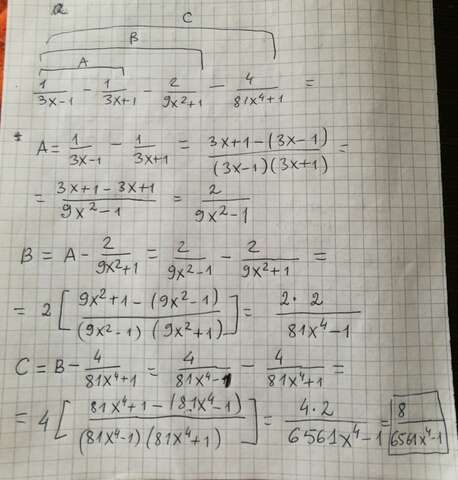 a
C
B
A
1/(3x-1) - 1/(3x+1) - 2/(9x²+1) - 4/(81x⁴+1) =
* A = 1/(3x-1) - 1/(3x+1) = (3x+1-(3x-1))/((3x-1)(3x+1)) =
= (3x+1-3x+1)/(9x²-1) = 2/(9x²-1)
B = A - 2/(9x²+1) = 2/(9x²-1) - 2/(9x²+1) =
= 2[(9x²+1-(9x²-1))/((9x²-1)(9x²+1))] = (2·2)/(81x⁴-1)
C = B - 4/(81x⁴+1) = 4/(81x⁴-1) - 4/(81x⁴+1) =
= 4[(81x⁴+1-(81x⁴-1))/((81x⁴-1)(81x⁴+1))] = (4·2)/(6561x⁴-1) = 8/(6561x⁴-1)